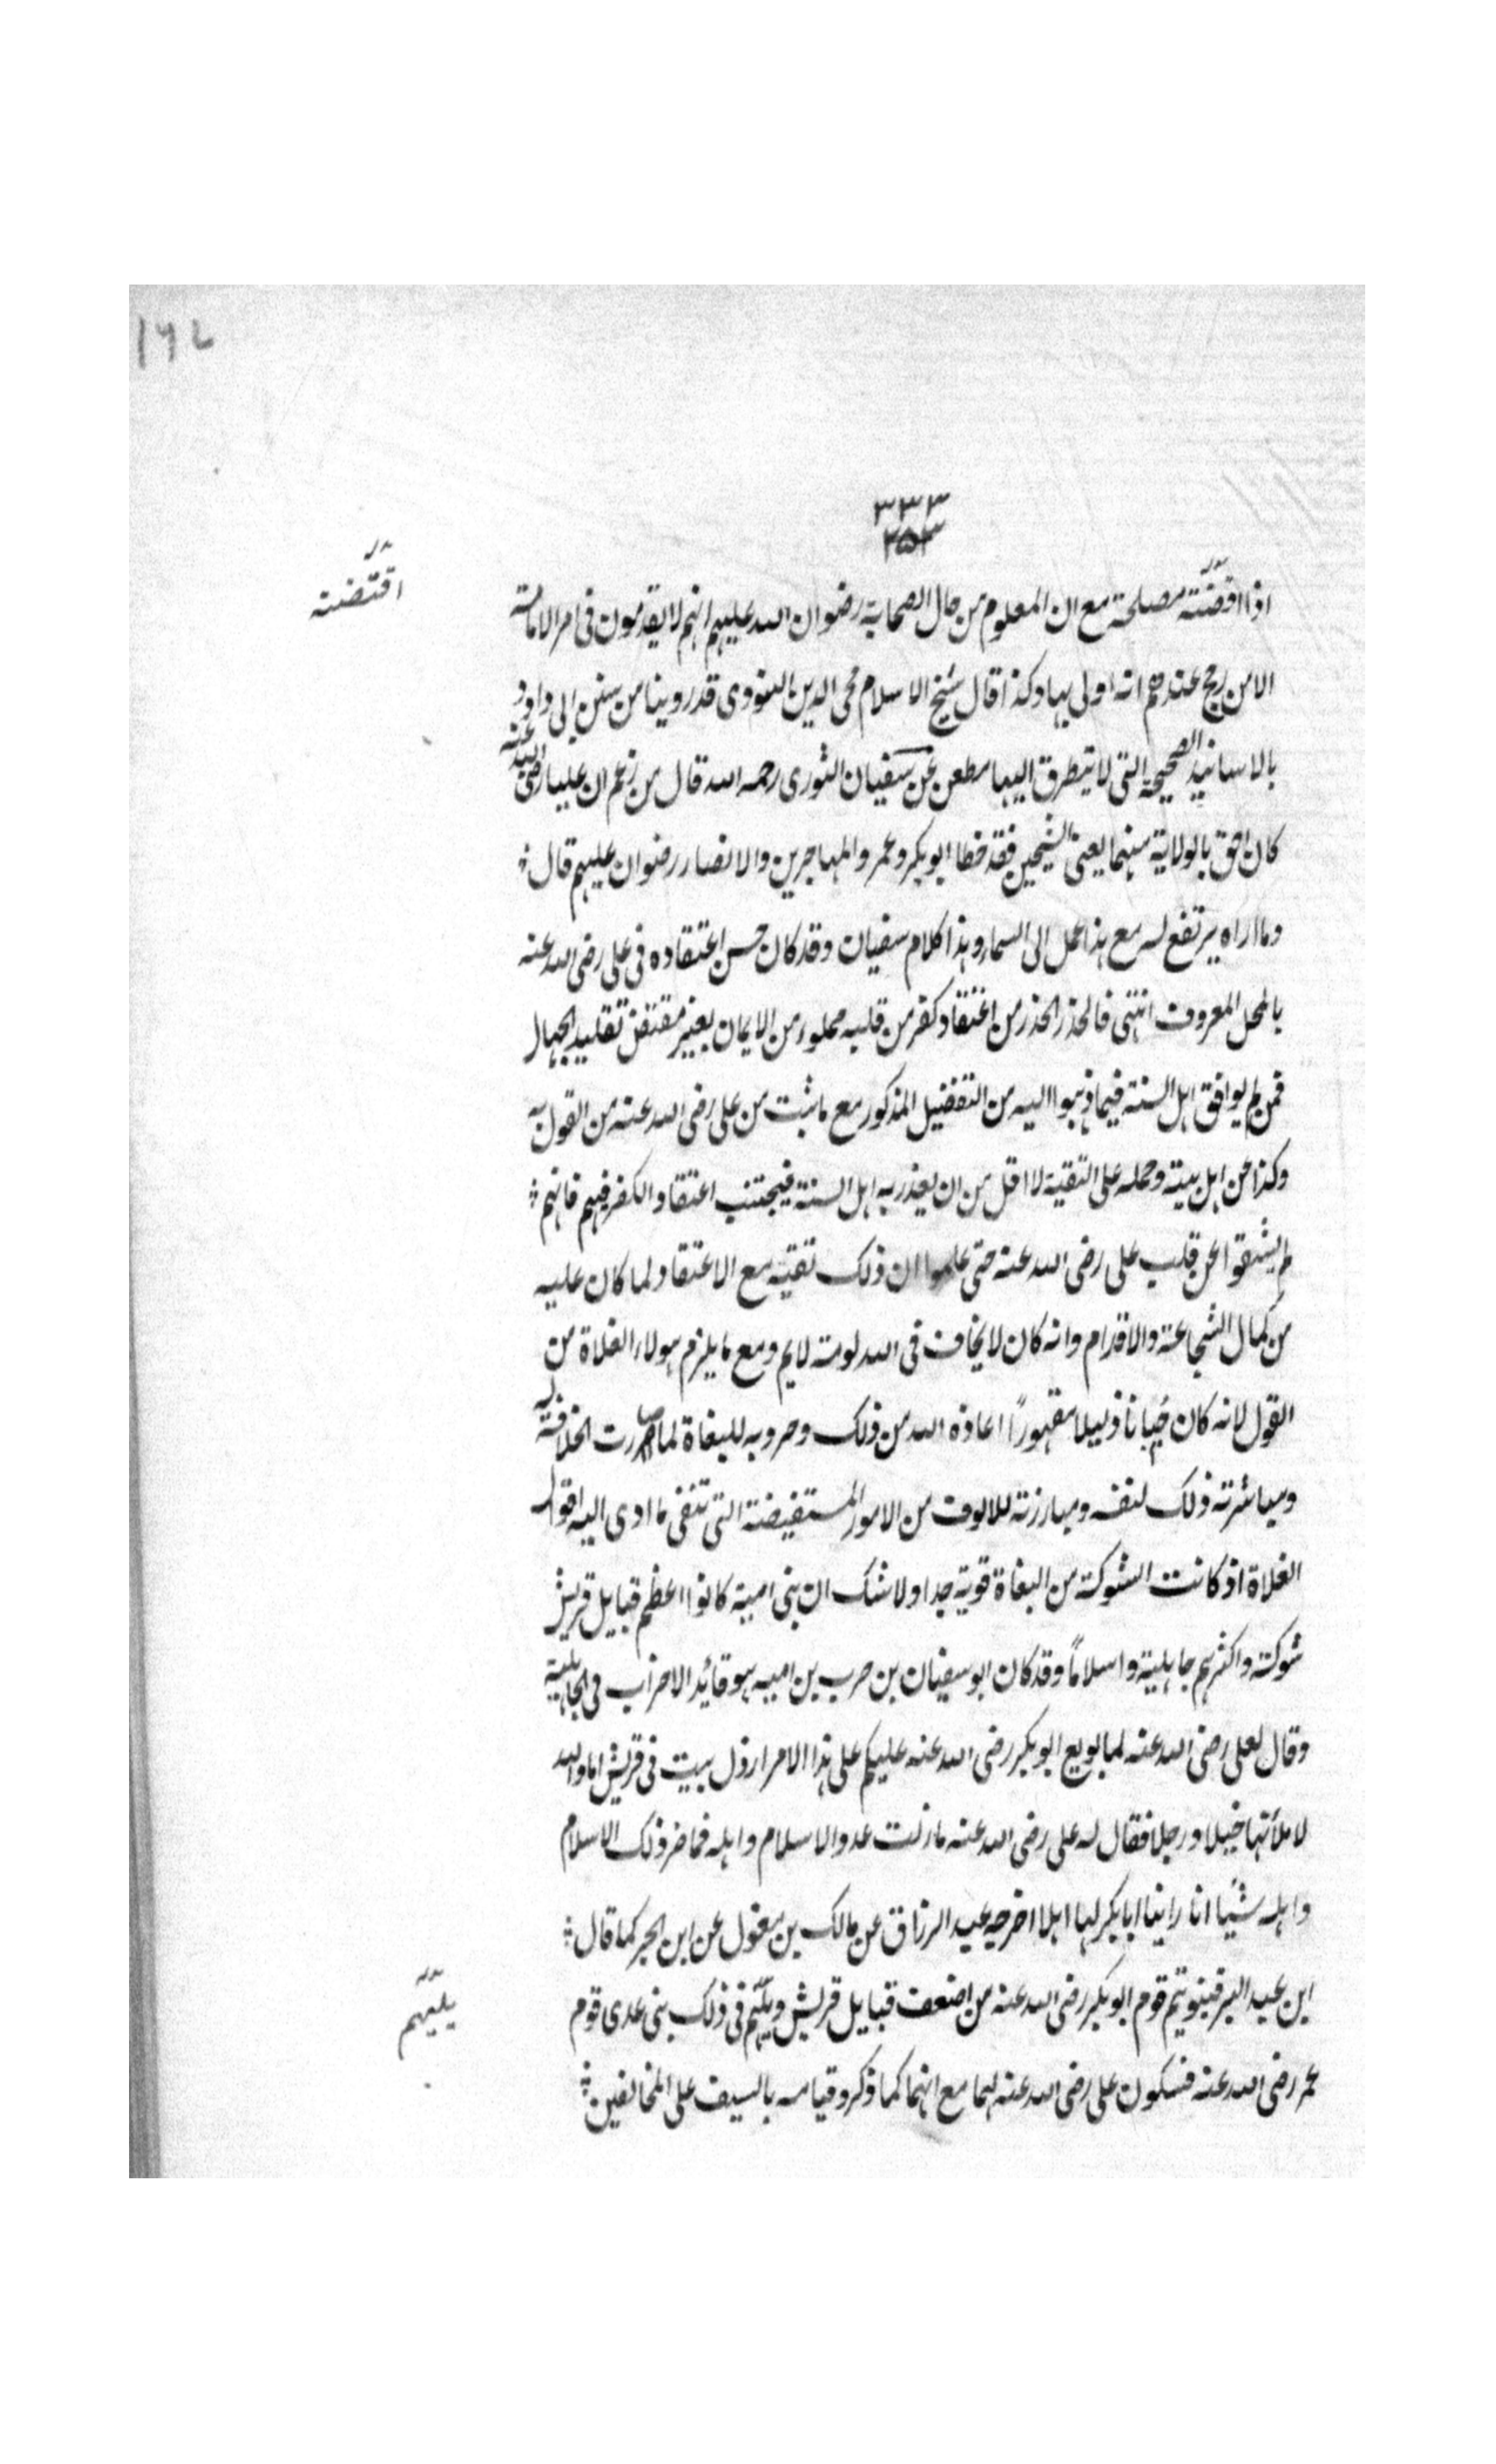 ١٦٧
٣٣٣
٢٥٣
اذا اقتضته مصلحة مع ان المعلوم من حال الصحابة رضوان الله عليهم انهم لا يقدمون فى امر الامامة
اقتضته
الا من رجح عندهم انه اولى بها وكذا قال شيخ الاسلام محى الدين النووى قد روينا من سنن ابى داود
بالاسانيد الصحيحة التى لا يتطرق اليها مطعن عن سفيان الثورى رحمه الله قال من زعم ان عليا رضى الله عنه
كان احق بالولاية منهما يعنى الشيخين فقد خطا ابو بكر وعمر والمهاجرين والانصار رضوان عليهم قال
وما اراه يرتفع له مع هذا عمل الى السماء وهذا كلام سفيان وقد كان حسن اعتقاده فى على رضى الله عنه
بالمحل المعروف انتهى فالحذر الحذر من اعتقاد كفر من قلبه مملوء من الايمان بغير مقتض تقليد الجهال
فمن لم يوافق اهل السنة فيما ذهبوا اليه من التفضيل المذكور مع ما ثبت من على رضى الله عنه من القول به
وكذا من اهل بيته وحمله على التقية لا اقل من ان يعذر به اهل السنة فيجتنب اعتقاد الكفر فيهم فانهم
لم يشقوا عن قلب على رضى الله عنه حتى علموا ان ذلك تقية مع الاعتقاد لما كان عليه
من كمال الشجاعة والاقدام وانه كان لا يخاف فى الله لومة لايم ومع ما يلزم هولاء الغلاة من
القول لانه كان جبانا ذليلا مقهوراً اعاذه الله من ذلك وحروبه للبغاة لما صارت الخلافة له
ومباشرته ذلك لنفسه ومبارزته للالوف من الامور المستفيضة التى تنفى ما ادى اليه اقوال
الغلاة اذ كانت الشوكة من البغاة قوية جدا ولا شك ان بنى امية كانوا اعظم قبايل قريش
شوكة واكثرهم جاهلية واسلاماً وقد كان ابو سفيان بن حرب بن اميه هو قائد الاحزاب فى الجاهلية
وقال لعلى رضى الله عنه لما بويع ابو بكر رضى الله عنه عليكم على هذا الامر ارذل بيت فى قريش اما والله
لاملأنها خيلا ورجلا فقال له على رضى الله عنه ما زلت عدو الاسلام واهله فما ضر ذلك الاسلام
واهله شيئا انا راينا ابا بكر لها اهلا اخرجه عبد الرزاق عن مالك بن مغول عن ابن الحر كما قال
ابن عبد البر فبنو تيم قوم ابو بكر رضى الله عنه من اضعف قبايل قريش ويليهم فى ذلك بنى عدى قوم
يليهم
عمر رضى الله عنه فسكون على رضى الله عنه لهما مع انهما كما ذكر وقيامه بالسيف على المخالفين